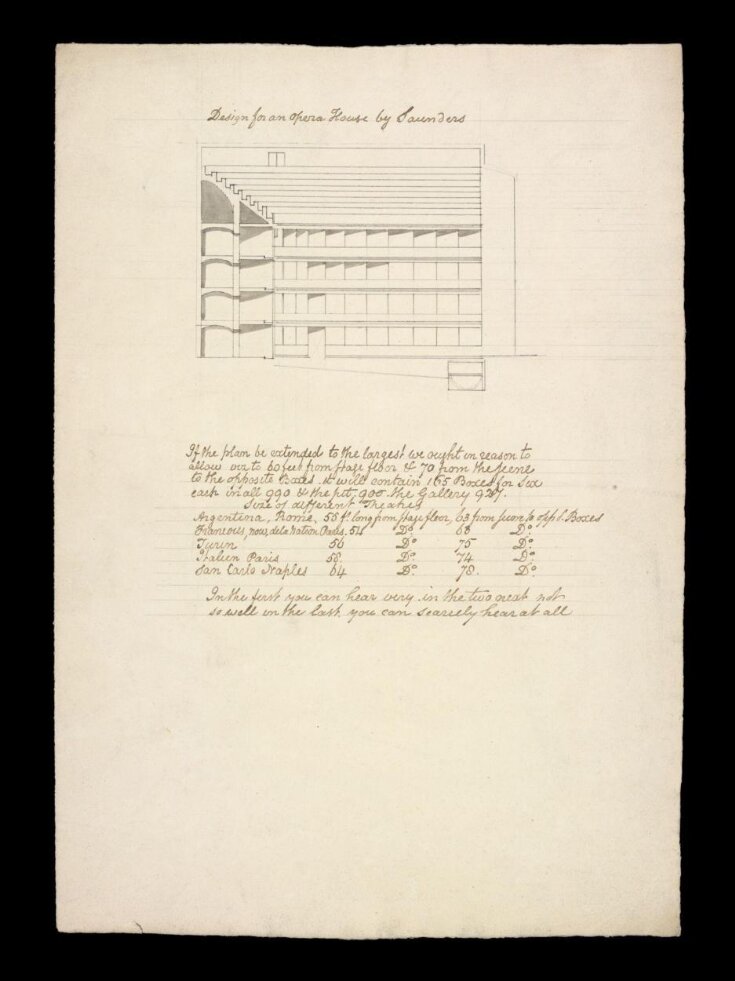 Design for an Opera House by Saunders
If the plan be extended to the largest we ought in reason to
allow viz to 60 feet from stage floor & 70 from the scene
to the opposite Boxes. it will contain 165 Boxes for Six
each in all 990 & the pit, 900. the Gallery
Size of different Theatres
Argentina, Rome, 55 ft. long from stage floor, 63 from to opp.t Boxes
Francois, now, de la Nation Paris. 54 Do. 68 Do.
Turin 56 75 Do.
Italien Paris 58 Do. 74 Do.
San Carlo Naples 64 Do. 78. Do.
In the first you can hear very. in the two next not
so well in the last you can scarsely hear at all